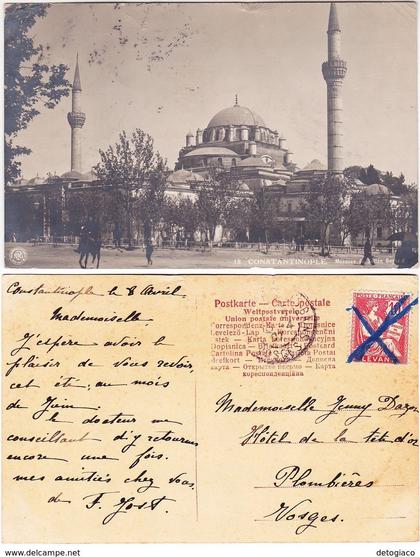 18 CONSTANTINOPLE. Mosquée
Constantinople le 8 Avril.
Mademoiselle,
J'espère avoir le
plaisir de vous revoir,
cet été, au mois
de Juin,
le docteur me
conseillant d'y retourner
encore une fois.
mes amitiés chez vous.
de F. Jost.
Postkarte — Carte postale
Weltpostverein
Union postale universelle
Correspondenz-Karte
Levelező-Lap
Korrespondenční
lístek — Karta korespondencyjna
Dopisnica — Briefkaart
Cartolina Postale
Brefkort — Brevkort Дописна
карта — Открытое письмо — Карта
корреспонденційна
POSTE FRANÇAISE
LEVANT
Mademoiselle Jenny
Hôtel de la tête d'or
Plombières
Vosges.
© delcampe.net
detogiaco